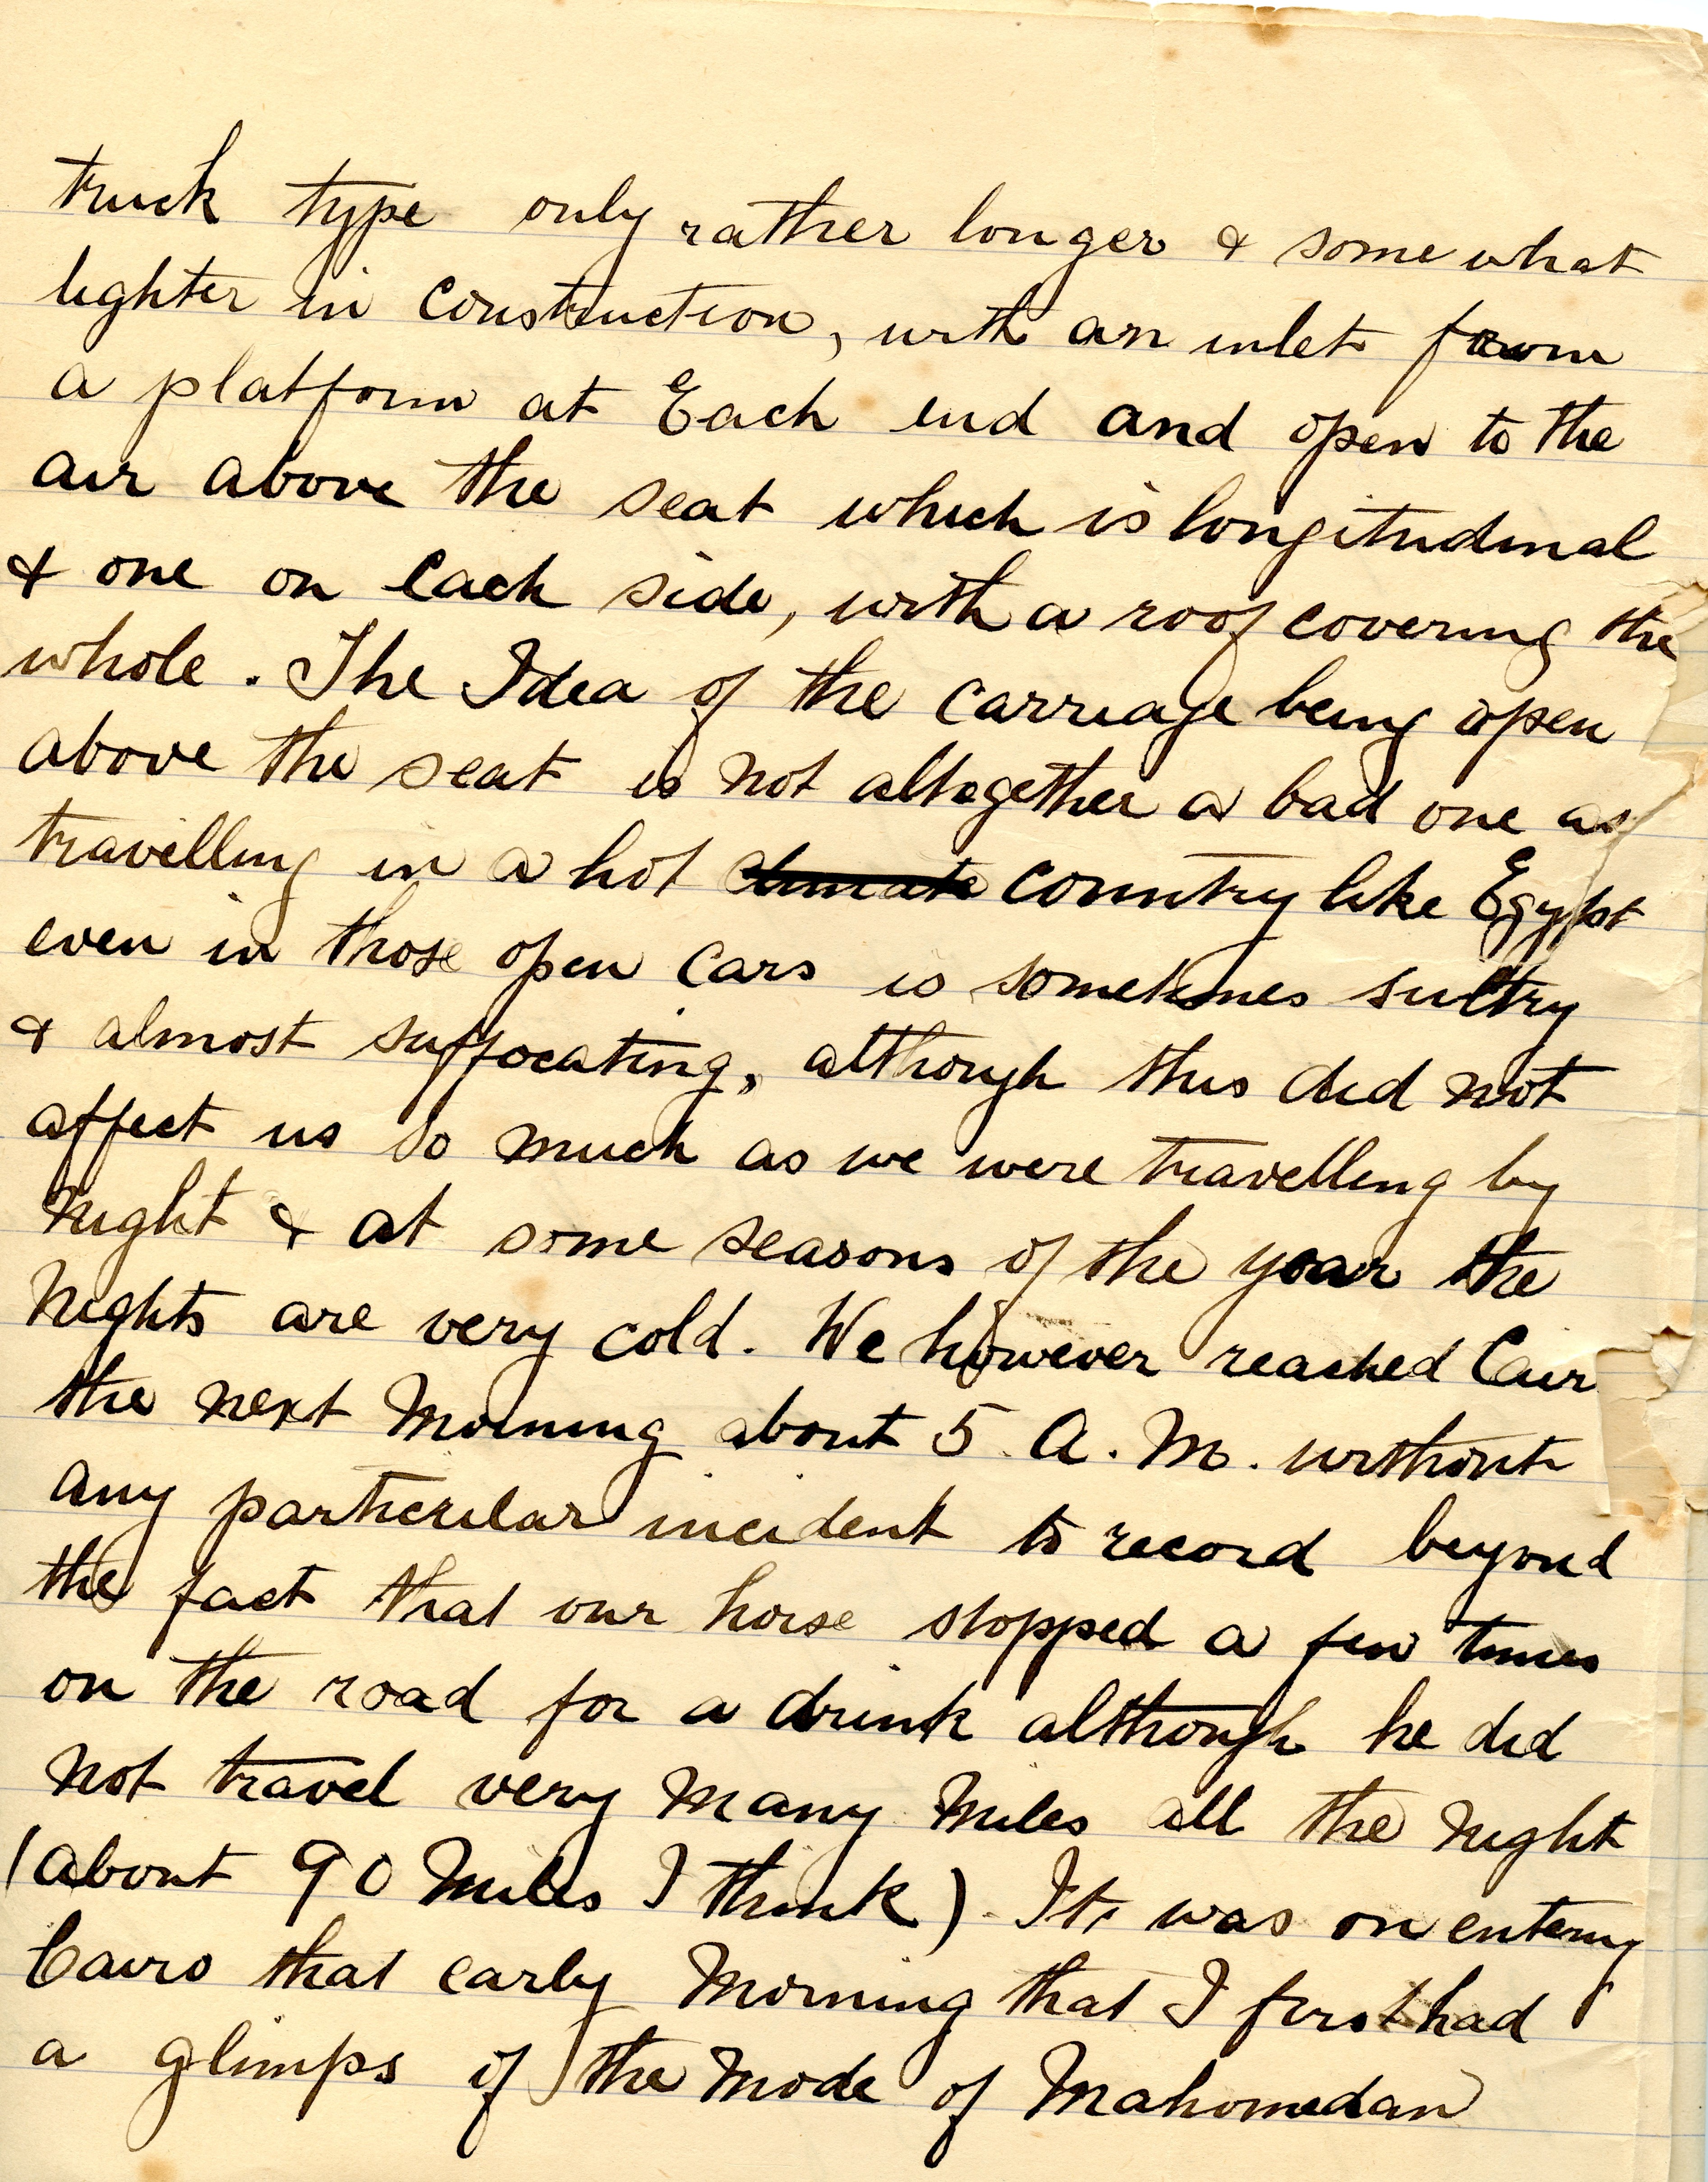 truck type only rather longer & some what
lighter in construction, with an inlet from
a platform at Each end and open to the
air above the seat which is longitudinal
& one on each side, with a roof covering the
whole. The Idea of the carriage being open
above the seat is not altogether a bad one as
travelling in a hot climate country like Egypt
even in those open cars is sometimes sultry
& almost suffocating, although this did not
affect us so much as we were travelling by
Night & at some seasons of the year the
Nights are very cold. We however reached Cair
the next Morning about 5 A.M. without
any particular incident to record beyond
the fact that our horse stopped a few times
on the road for a drink although he did
not travel very Many Miles all the Night
(about 90 Miles I think) It was on entering
Cairo that early Morning that I first had
a glimps of the Mode of Mahomedan